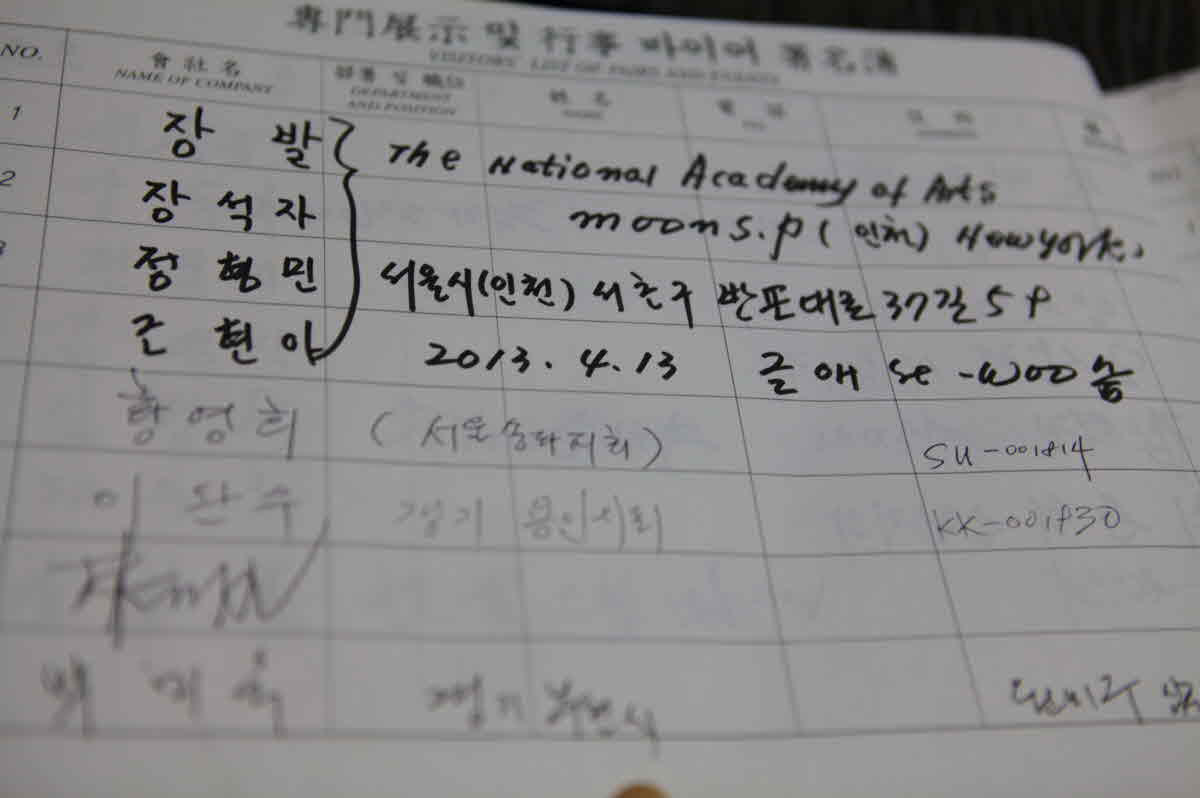 專門展示 및 行事 바이어 署名簿
VISITORS' LIST OF FAIRS AND EVENTS
NO. 會社名 部署 및 職位 姓名
NAME OF COMPANY DEPARTMENT AND POSITION NAME
1 장 발 The National Academy of Arts
2 장 석 자 moon s.p ( 인천 ) Newyork.
3 정 형 민 서울시(인천) 서초구 반포대로 37길 59
2013. 4. 13 글애 se-woo 솜
황 영 희 ( 서울송파지회 ) SU-001814
이 관 수 경기 용인지회 KK-001830
백 미 옥 경기